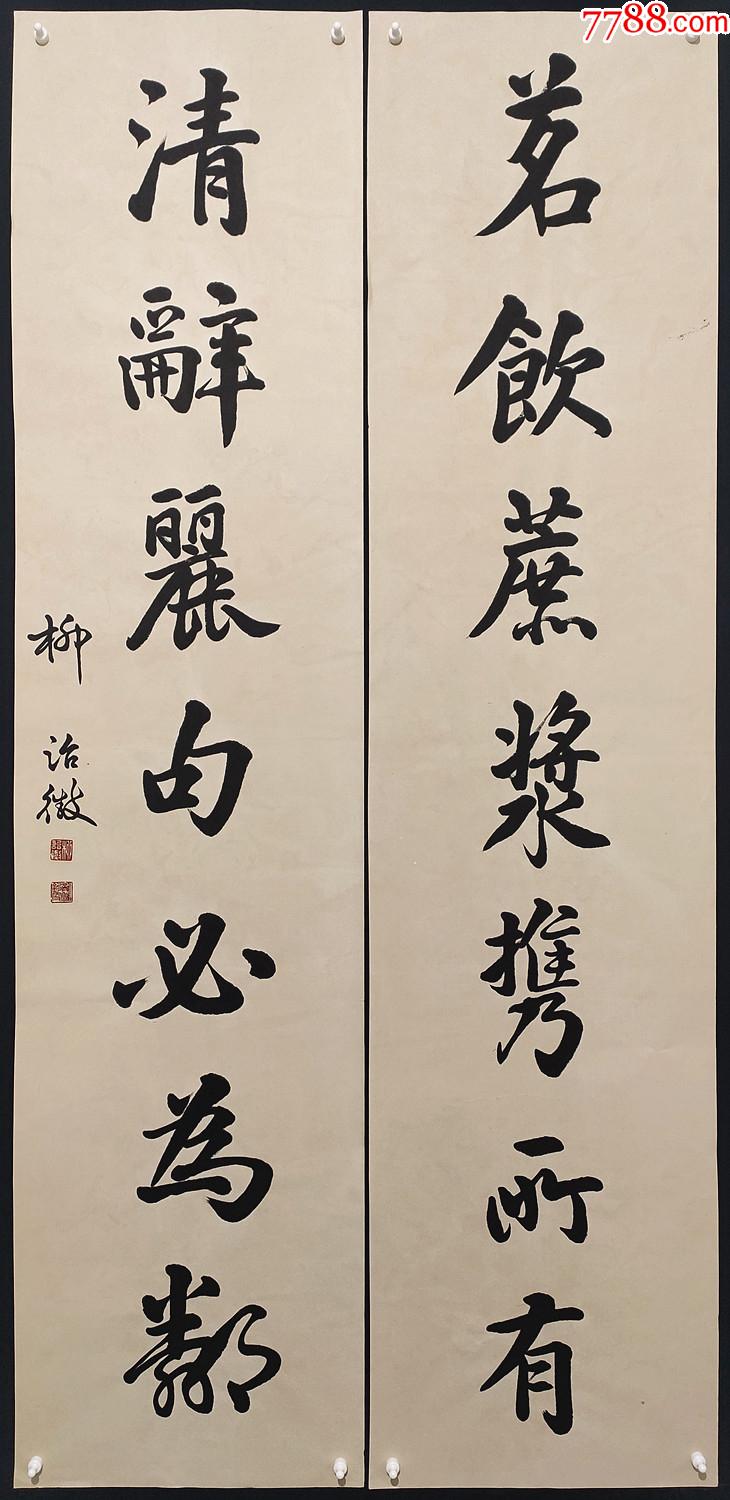 7788.com
茗飲蔗漿携所有
清辭麗句必為鄰
柳詒徵